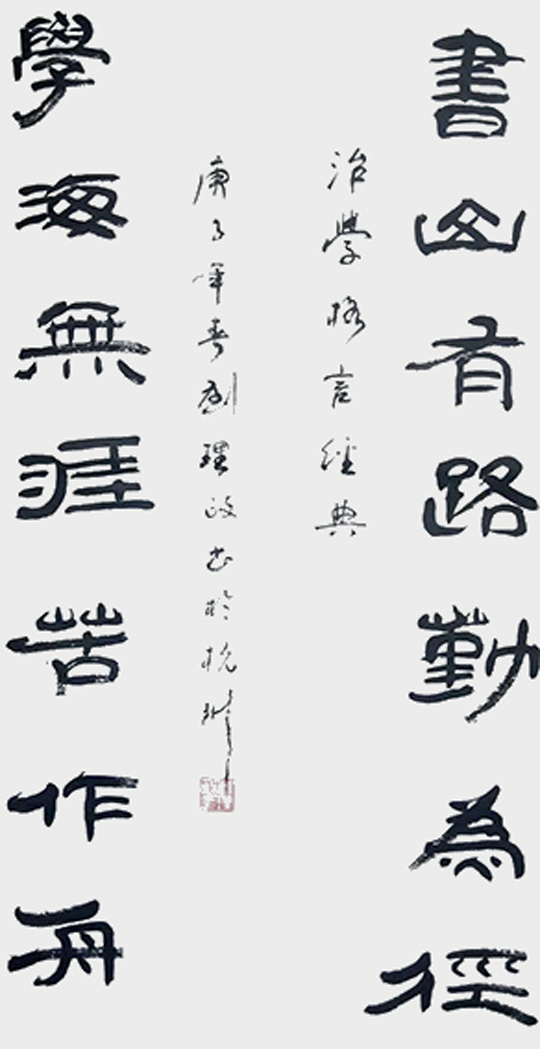 書山有路勤為徑
治學格言經典
庚子年春劉理政書於杭州
學海無涯苦作舟